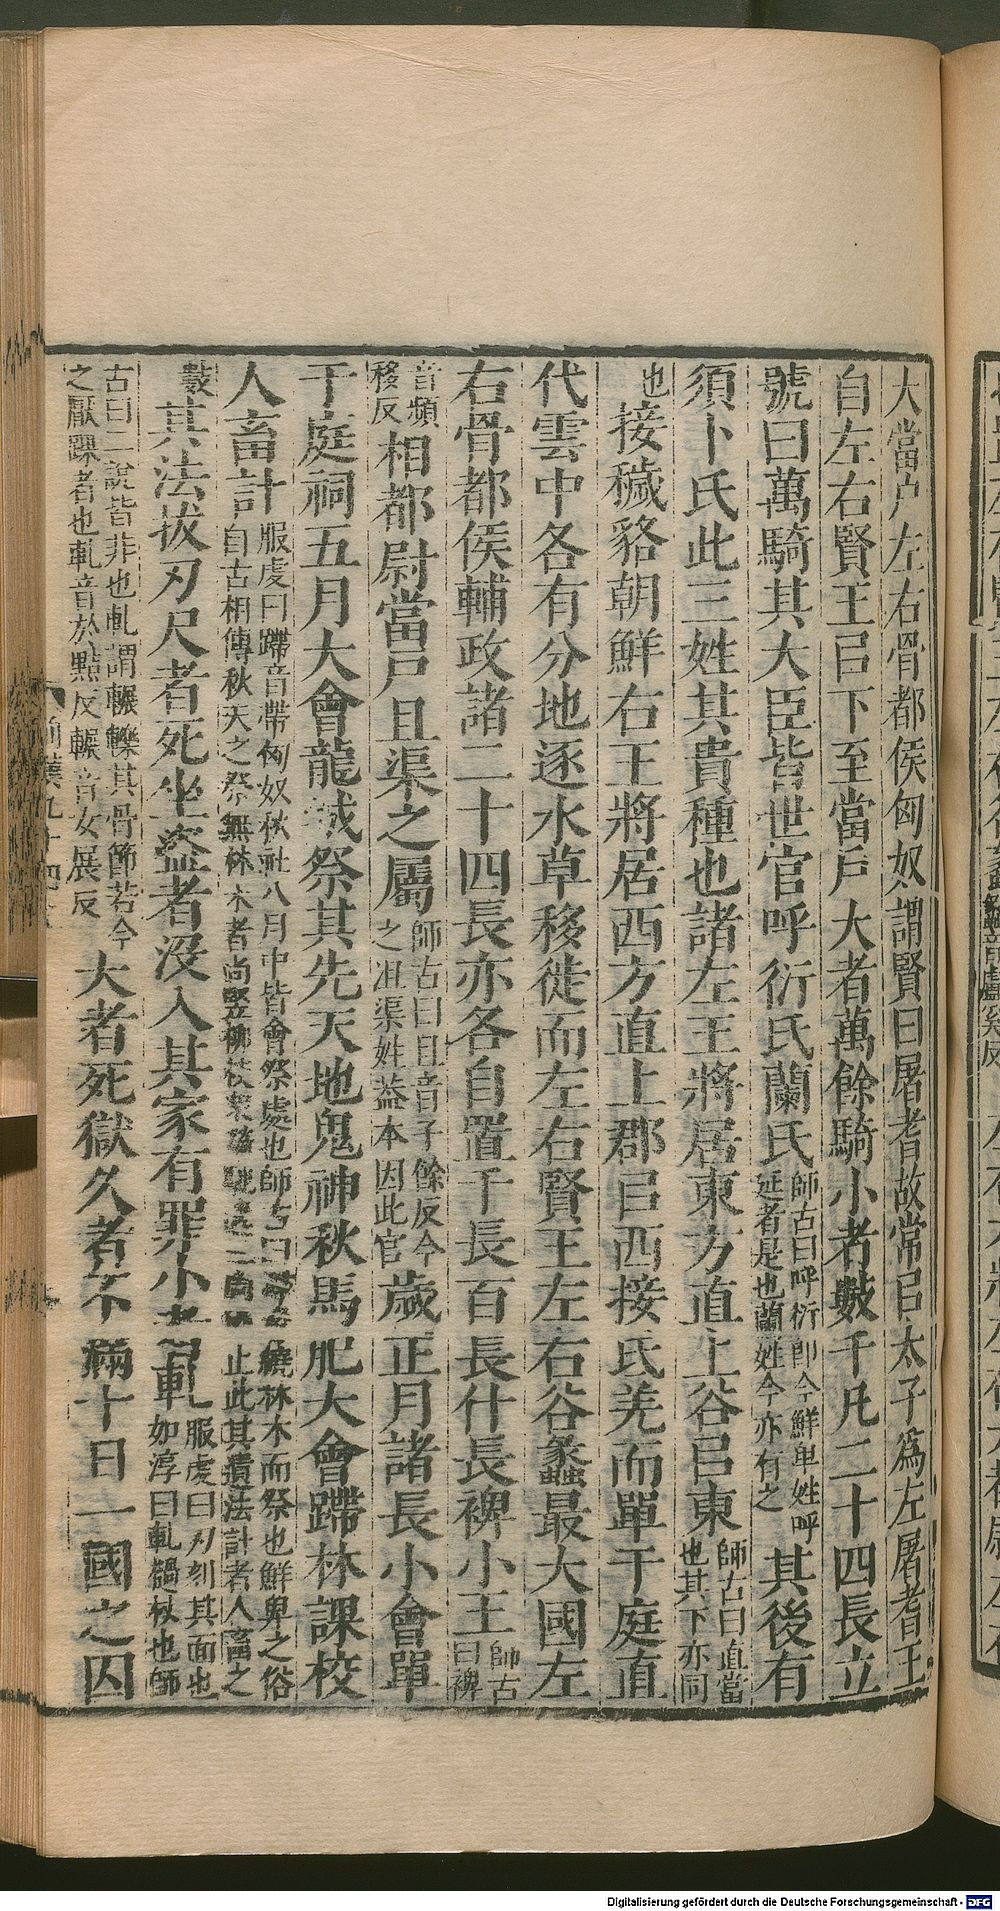 大當户左右骨都侯匈奴謂賢曰屠耆故常㠯太子爲左屠耆王
自左右賢王㠯下至當戶大者萬餘騎小者數千凡二十四長立
號曰萬騎其大臣皆世官呼衍氏蘭氏師古曰呼衍即今鮮卑姓呼延者是也蘭姓今亦有之其後有
須卜氏此三姓其貴種也諸左王將居東方直上谷㠯東師古曰直當也其下亦同
也接穢貉朝鮮右王將居西方直上郡㠯西接氐羌而單于庭直
代雲中各有分地逐水草移徙而左右賢王左右谷蠡最大國左
右骨都侯輔政諸二十四長亦各自置千長百長什長裨小王師古曰裨
音頻移反相都尉當戶且渠之屬師古曰且音子餘反今之沮渠姓蓋本因此官歲正月諸長小會單
于庭祠五月大會龍城祭其先天地鬼神秋馬肥大會蹛林課校
人畜計服虔曰蹛音帶匈奴秋社八月中皆會祭處也師古曰繞林木而祭也鮮卑之俗自古相傳秋天之祭無林木者尚豎柳枝止此其遺法計者人畜之
數其法拔刃尺者死坐盜者沒入其家有罪小者軋服虔曰刃刻其面也如淳曰軋檛杖也師
古曰二說皆非也軋謂輾轢其骨節若今之厭踝者也軋音於黠反輾音女展反大者死獄久者不滿十日一國之囚
前漢九十四
Digitalisierung gefördert durch die Deutsche Forschungsgemeinschaft - DFG